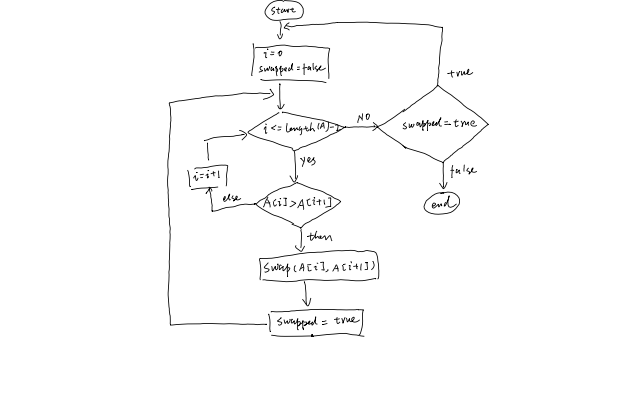 start
i=0
swapped=false
i <= length(A)-1
NO
swapped=true
true
false
end
yes
i=i+1
else
A[i]>A[i+1]
then
swap(A[i], A[i+1])
swapped = true